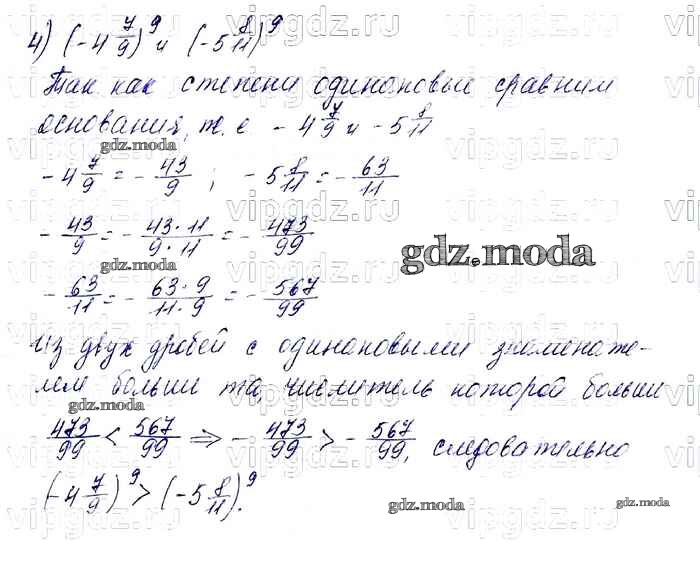 4) (-4 7/9)^9 и (-5 8/11)^9
Так как степени одинаковые сравним
основания, т. е -4 7/9 и -5 8/11
gdz.moda
-4 7/9 = - 43/9 ; -5 8/11 = - 63/11
- 43/9 = - 43·11/9·11 = - 473/99
gdz.moda
gdz.moda
- 63/11 = - 63·9/11·9 = - 567/99
Из двух дробей с одинаковыми знаменате-
лем больше та, числитель которой больше
gdz.moda
473/99 < 567/99 ⇒ - 473/99 > - 567/99, следовательно
(-4 7/9)^9 > (-5 8/11)^9.
gdz.moda
gdz.moda
vipgdz.ru